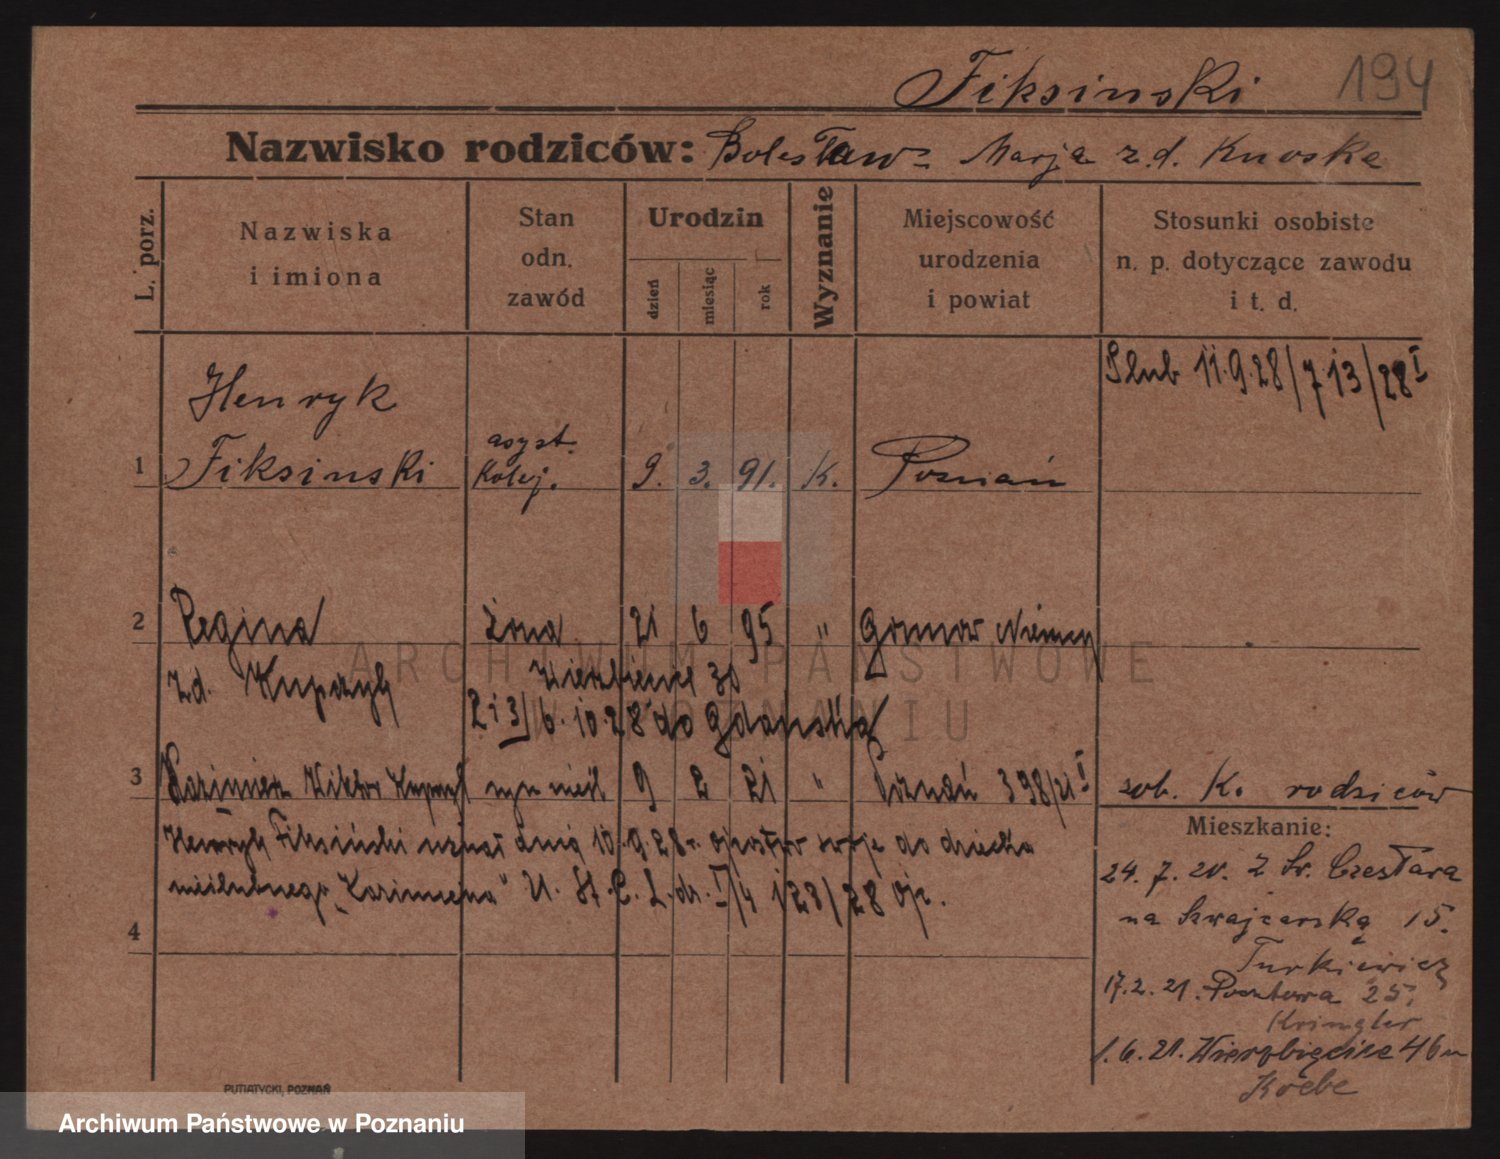 Fiksinski 194
Nazwisko rodziców: Bolesław = Marja z.d. Knoske
L. porz.
Nazwiska
i imiona
Stan
odn.
zawód
Urodzin
dzień
miesiąc
rok
Wyznanie
Miejscowość
urodzenia
i powiat
Stosunki osobiste
n. p. dotyczące zawodu
i t. d.
Ślub 11.9.28/713/28 I
1 Henryk
Fiksinski asyst.
kolej. 9. 3. 91. K. Poznań
2 Regina żona 21 6 95 " Niemcy
zd. Kupczyk Wierzbięcice 30
2 i 3/6.10.28 do Gdańska
3 Kazimierz Wiktor Kupczyk syn nieśl 9 2 21 " Poznań 398/21 I
sob. K. rodziców
Henryk Fiksiński uznał dnia 10.9.28r. ojcostwo swoje do dziecka
nieślubnego „Kazimierza" U. St. C. L. dz. I/4 128/28
4
Mieszkanie:
24. 7. 20. z Św. Czesława
na Szwajcarską 15.
Turkiewicz
17.2.21. Pocztowa 25.
Kringler
1.6.21. Wierzbięcice 46
Koebe
PUTIATYCKI, POZNAŃ
ARCHIWUM PAŃSTWOWE
W POZNANIU
Archiwum Państwowe w Poznaniu